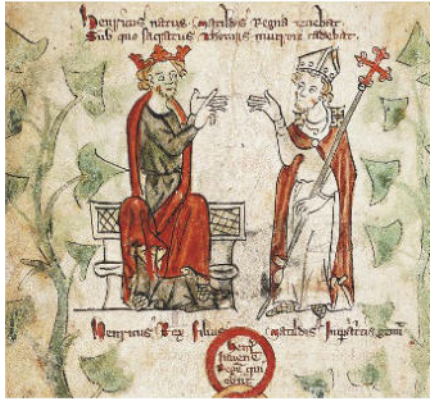 Henricus natus Matildis Regna tenebat.
Sub quo sacratus Thomas mucrone cadebat.
Henricus Rex filius Matildis
qui
obiit